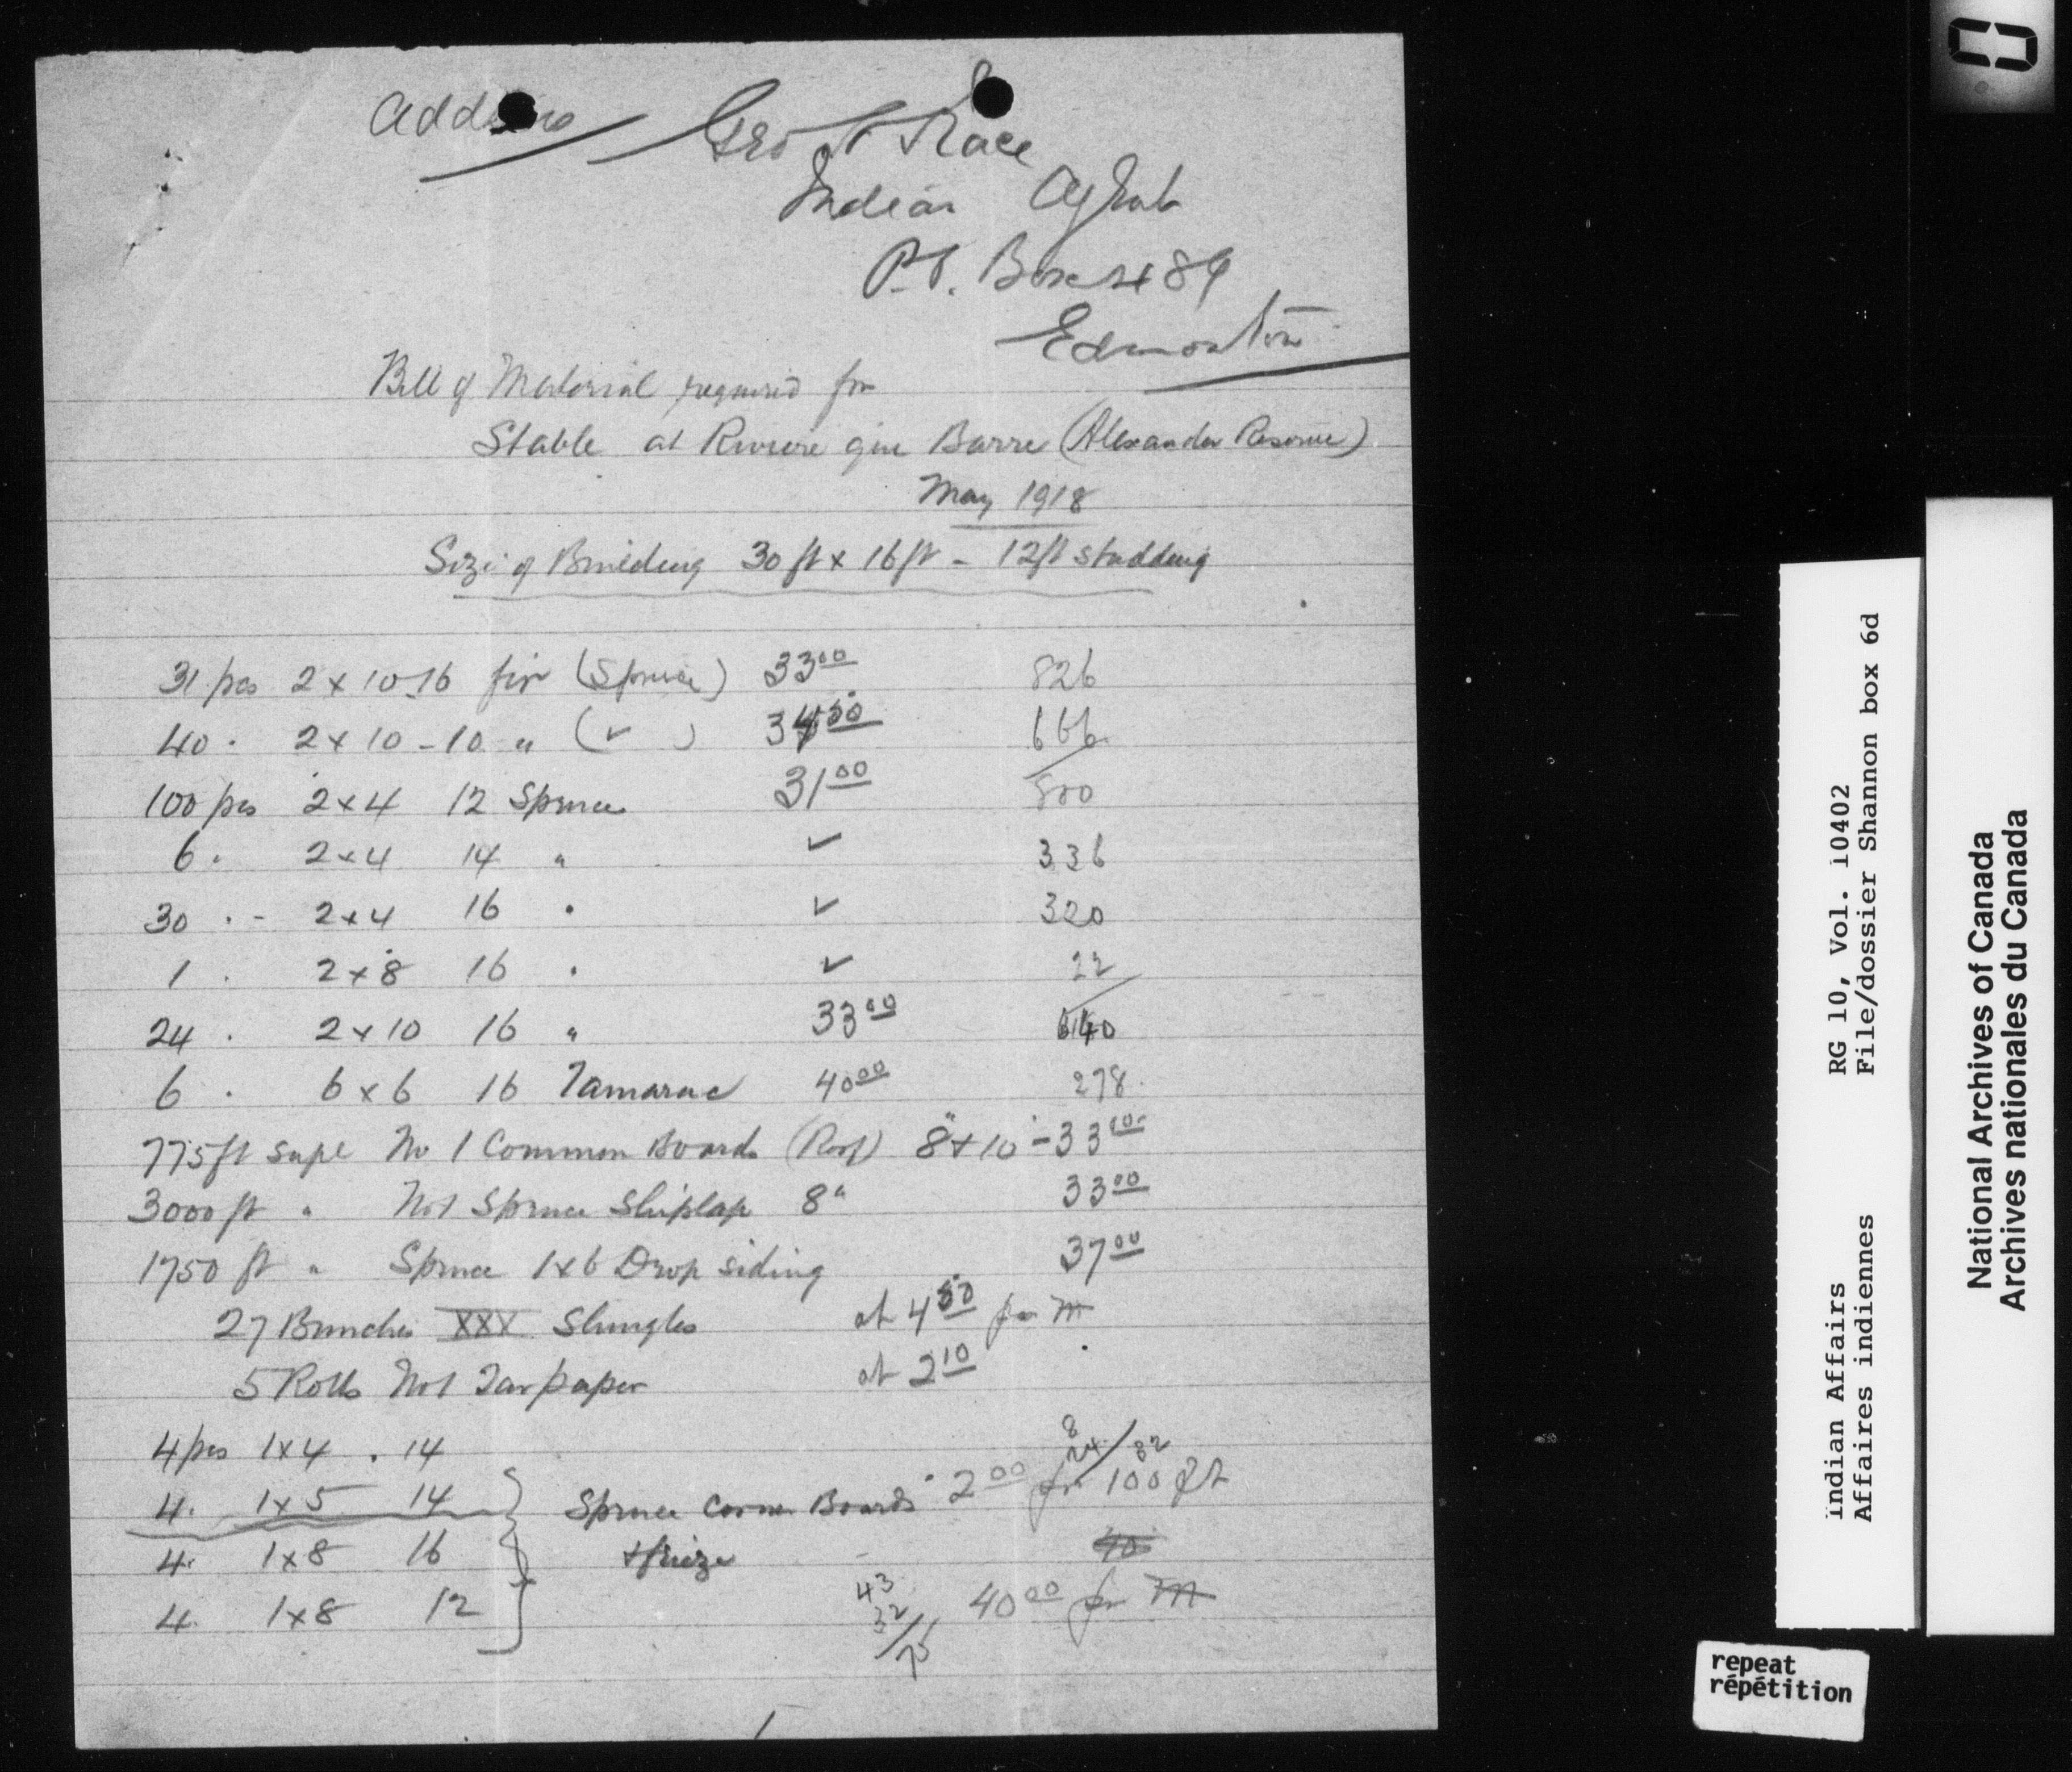 Address Geo H Race
Indian Agent
P.O. Box 489
Edmonton
Bill of Material required for
Stable at Riviere qui Barre (Alexander Reserve)
May 1918
Size of Building 30 ft x 16 ft - 12 ft studding
31 pcs 2 x 10-16 fir (Spruce) 33 00 826
40 . 2 x 10 - 10 " ( ✓ ) 34 50 666
100 pcs 2 x 4 12 Spruce 31 00 800
6 . 2 x 4 14 " ✓ 336
30 . - 2 x 4 16 " ✓ 320
1 . 2 x 8 16 " ✓ 22
24 . 2 x 10 16 " 33 00 640
6 . 6 x 6 16 Tamarac 40 00 278
775 ft supl No 1 Common Boards (Roof) 8" + 10" - 33 00
3000 ft " No 1 Spruce Shiplap 8" 33 00
1750 ft " Spruce 1x6 Drop siding 37 00
27 Bunches XXX Shingles at 4 50 per M
5 Rolls No 1 Tar paper at 2 10
4 pcs 1x4 . 14
4 . 1x5 14 Spruce Corner Boards 2 00 per 100 ft
4 . 1x8 16 + frieze
4 . 1x8 12 40 00 per M
43
32/75
8
24/32
Indian Affairs RG 10, Vol. 10402
Affaires indiennes File/dossier Shannon box 6d
National Archives of Canada
Archives nationales du Canada
repeat
répétition